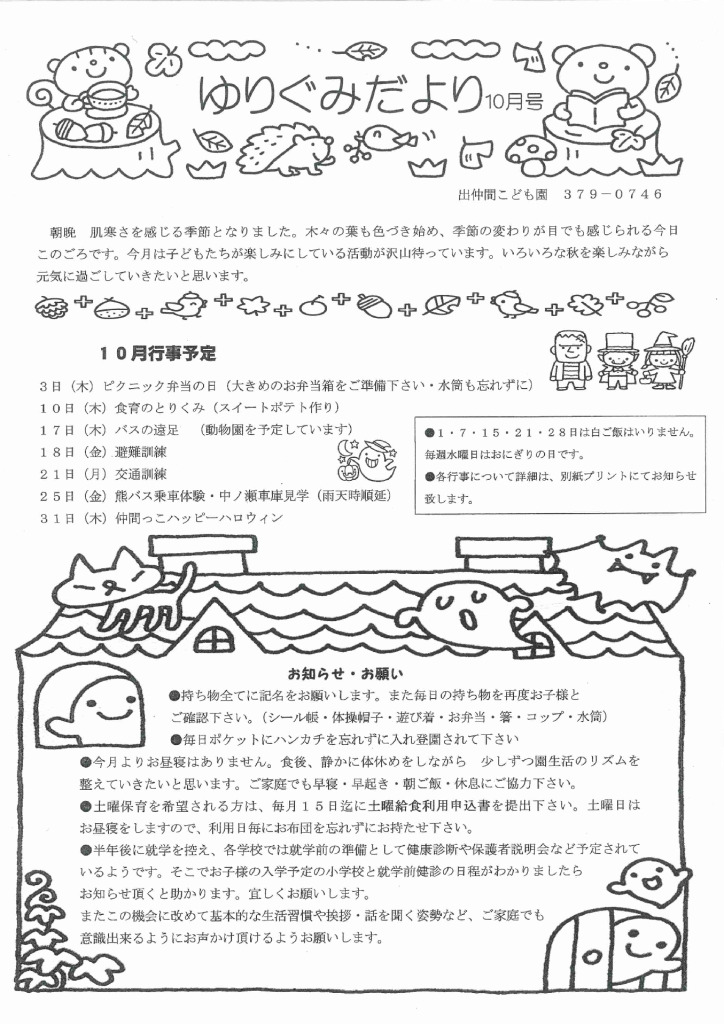 ゆりぐみだより10月号
出仲間こども園　３７９－０７４６
朝晩　肌寒さを感じる季節となりました。木々の葉も色づき始め、季節の変わりが目でも感じられる今日
このごろです。今月は子どもたちが楽しみにしている活動が沢山待っています。いろいろな秋を楽しみながら
元気に過ごしていきたいと思います。
１０月行事予定
３日（木）ピクニック弁当の日（大きめのお弁当箱をご準備下さい・水筒も忘れずに）
１０日（木）食育のとりくみ（スイートポテト作り）
１７日（木）バスの遠足　（動物園を予定しています）
１８日（金）避難訓練
２１日（月）交通訓練
２５日（金）熊バス乗車体験・中ノ瀬車庫見学（雨天時順延）
３１日（木）仲間っこハッピーハロウィン
●１・７・１５・２１・２８日は白ご飯はいりません。
毎週水曜日はおにぎりの日です。
●各行事について詳細は、別紙プリントにてお知らせ
致します。
お知らせ・お願い
●持ち物全てに記名をお願いします。また毎日の持ち物を再度お子様と
ご確認下さい。（シール帳・体操帽子・遊び着・お弁当・箸・コップ・水筒）
●毎日ポケットにハンカチを忘れずに入れ登園されて下さい
●今月よりお昼寝はありません。食後、静かに体休めをしながら　少しずつ園生活のリズムを
整えていきたいと思います。ご家庭でも早寝・早起き・朝ご飯・休息にご協力下さい。
●土曜保育を希望される方は、毎月１５日迄に土曜給食利用申込書を提出下さい。土曜日は
お昼寝をしますので、利用日毎にお布団を忘れずにお持たせ下さい。
●半年後に就学を控え、各学校では就学前の準備として健康診断や保護者説明会など予定されて
いるようです。そこでお子様の入学予定の小学校と就学前健診の日程がわかりましたら
お知らせ頂くと助かります。宜しくお願いします。
またこの機会に改めて基本的な生活習慣や挨拶・話を聞く姿勢など、ご家庭でも
意識出来るようにお声かけ頂けるようお願いします。